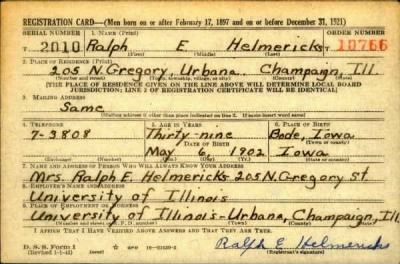 REGISTRATION CARD—(Men born on or after February 17, 1897 and on or before December 31, 1921)
SERIAL NUMBER 1. NAME (Print) ORDER NUMBER
T 2010 Ralph E Helmericks T 10766
(First) (Middle) (Last)
2. PLACE OF RESIDENCE (Print)
205 N. Gregory, Urbana, Champaign, Ill.
(Number and street) (Town, township, village, or city) (County) (State)
[THE PLACE OF RESIDENCE GIVEN ON THE LINE ABOVE WILL DETERMINE LOCAL BOARD
JURISDICTION; LINE 2 OF REGISTRATION CERTIFICATE WILL BE IDENTICAL]
3. MAILING ADDRESS
Same
(Mailing address if other than place indicated on line 2. If same insert word same)
4. TELEPHONE 5. AGE IN YEARS 6. PLACE OF BIRTH
7-3808 Thirty-nine Bode, Iowa
DATE OF BIRTH
May 6, 1902 Iowa
7. NAME AND ADDRESS OF PERSON WHO WILL ALWAYS KNOW YOUR ADDRESS
Mrs. Ralph E. Helmericks 205 N. Gregory St
8. EMPLOYER'S NAME AND ADDRESS
University of Illinois
9. PLACE OF EMPLOYMENT OR BUSINESS
University of Illinois-Urbana, Champaign, Ill
I AFFIRM THAT I HAVE VERIFIED ABOVE ANSWERS AND THAT THEY ARE TRUE.
D. S. S. Form 1 GPO Ralph E Helmericks
(Registrant's signature)